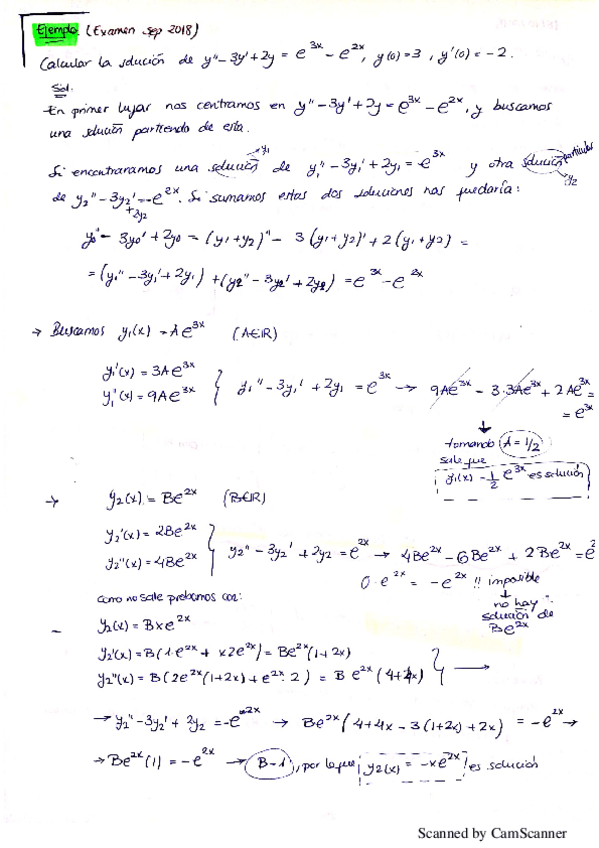 Ejemplo (Examen Sep 2018)
Calcular la solución de y'' - 3y' + 2y = e^3x - e^2x, y(0) = 3, y'(0) = -2.
Sol.
En primer lugar nos centramos en y'' - 3y' + 2y = e^3x - e^2x, y buscamos
una solución partiendo de esta.
Si encontraramos una solución de y₁'' - 3y₁' + 2y₁ = e^3x y otra solución particular
y₁
y₂
de y₂'' - 3y₂' + 2y₂ = -e^2x. Si sumamos estas dos soluciones nos quedaría:
y₀'' - 3y₀' + 2y₀ = (y₁+y₂)'' - 3(y₁+y₂)' + 2(y₁+y₂) =
= (y₁'' - 3y₁' + 2y₁) + (y₂'' - 3y₂' + 2y₂) = e^3x - e^2x
→ Buscamos y₁(x) = Ae^3x (A∈ℝ)
y₁'(x) = 3Ae^3x
y₁''(x) = 9Ae^3x } y₁'' - 3y₁' + 2y₁ = e^3x → 9Ae^3x - 3·3Ae^3x + 2Ae^3x =
= e^3x
↓
tomando A = 1/2
sale que
y₁(x) - 1/2 e^3x es solución
→ y₂(x) = Be^2x (B∈ℝ)
y₂'(x) = 2Be^2x
y₂''(x) = 4Be^2x } y₂'' - 3y₂' + 2y₂ = e^2x → 4Be^2x - 6Be^2x + 2Be^2x = e^2
0·e^2x = -e^2x !! imposible
↓
no hay
solución de
Be^2x
como no sale probamos con:
- y₂(x) = Bxe^2x
y₂'(x) = B(1·e^2x + x2e^2x) = Be^2x(1+2x)
y₂''(x) = B(2e^2x(1+2x) + e^2x·2) = Be^2x(4+4x) } →
→ y₂'' - 3y₂' + 2y₂ = -e^2x → Be^2x(4+4x - 3(1+2x) + 2x) = -e^2x →
→ Be^2x(1) = -e^2x → B-1, por lo que y₂(x) = -xe^2x es solución
Scanned by CamScanner